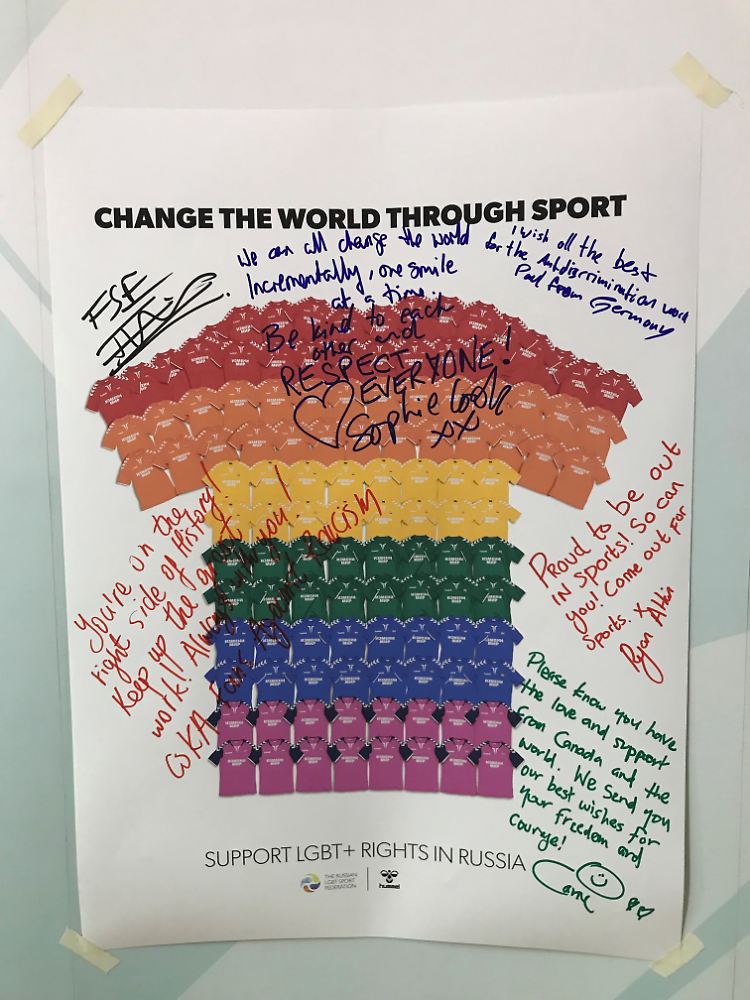 CHANGE THE WORLD THROUGH SPORT
FSF
We can all change the world
Incrementally, one smile
at a time.
Be kind to each
other and
RESPECT
EVERYONE!
Sophie Cook
xx
I wish all the best
for the Antidiscrimination work
Paul from Germany
You're on the
right side of History!
Keep up the great
work! Always with you!
CSKA Fans Against Racism
Proud to be out
IN sports! So can
you! Come out for
sports. x
Ryan Atkin
Please know you have
the love and support
from Canada and the
world. We send you
our best wishes for
your freedom and
courage!
SUPPORT LGBT+ RIGHTS IN RUSSIA
THE RUSSIAN
LGBT SPORT
FEDERATION
hummel